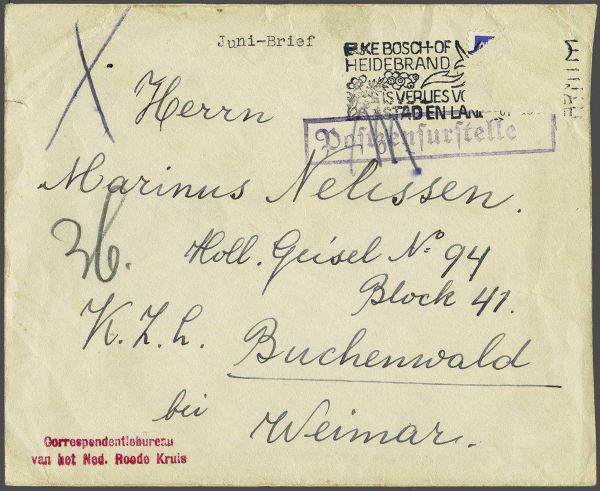 Juni-Brief
ELKE BOSCH-OF
HEIDEBRAND
IS VERLIES VO
STAD EN LAND
Postzensurstelle
Herrn
Marinus Nelissen.
36.
Holl. Geisel No 94
Block 41.
K. Z. L. Buchenwald
bei Weimar.
Correspondentiebureau
van het Ned. Roode Kruis